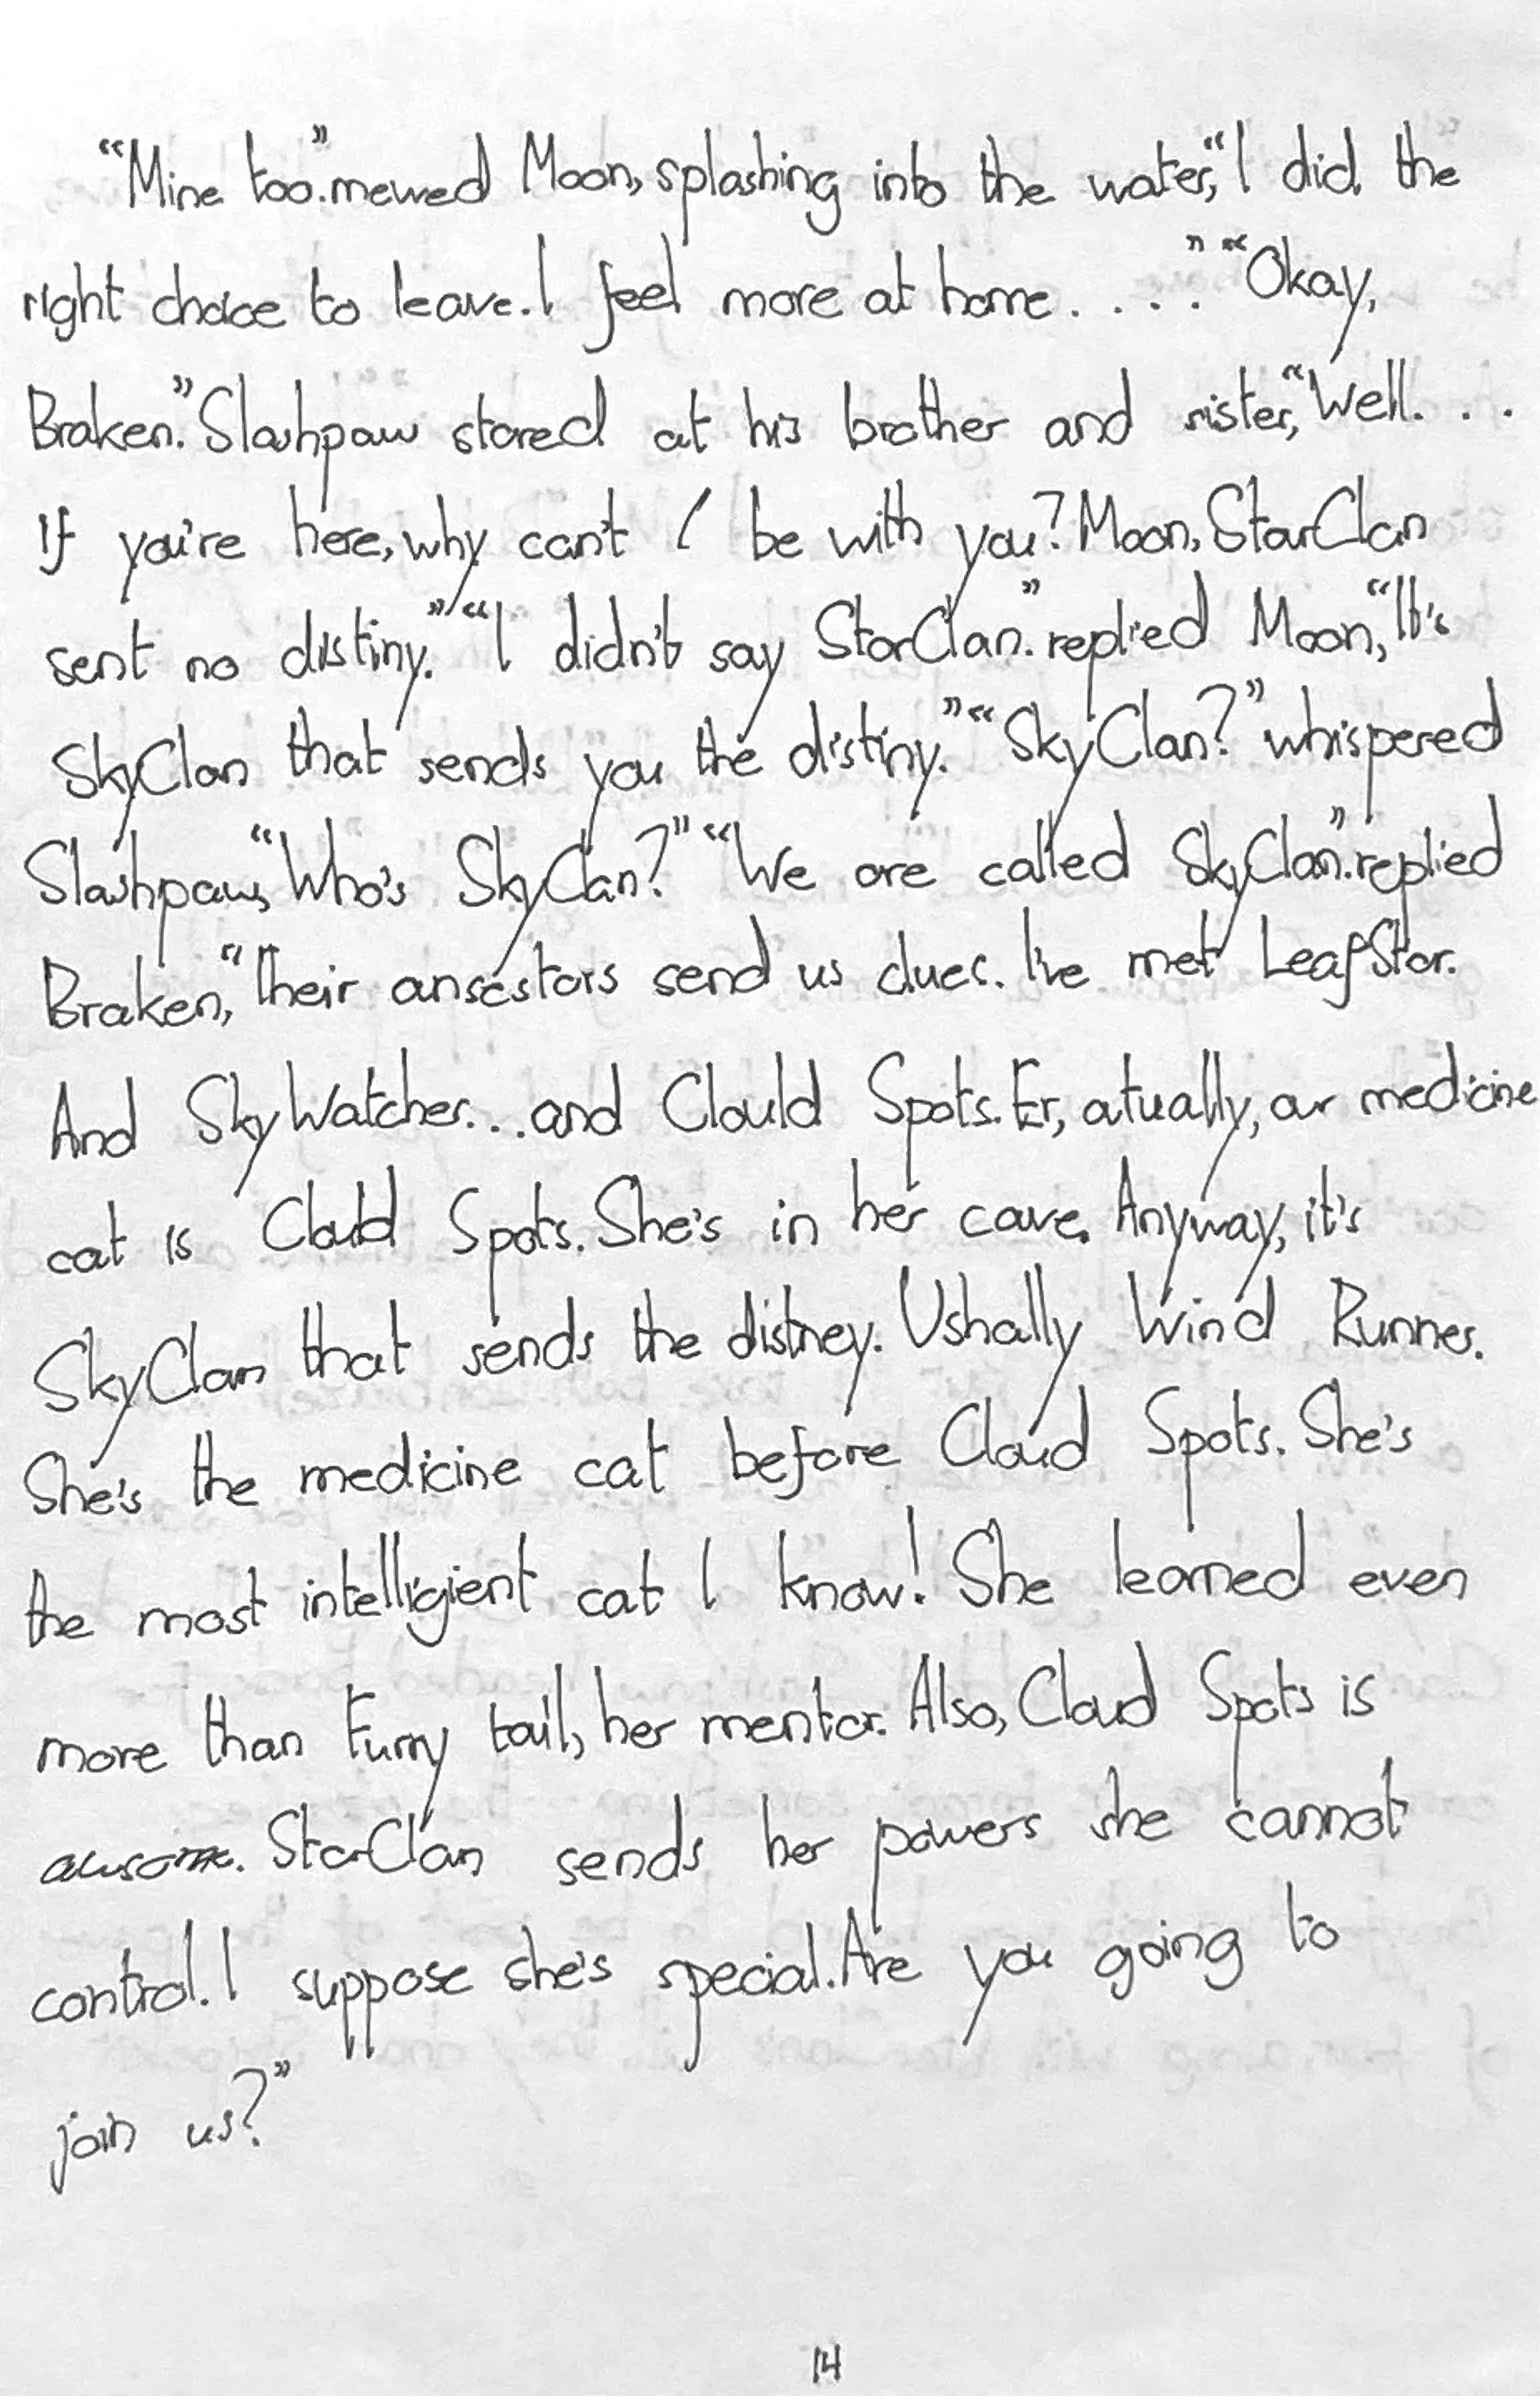 “Mine too.” mewed Moon, splashing into the water, “I did the
right choice to leave. I feel more at home. . . .” “Okay,
Braken.” Slashpaw stared at his brother and sister, “Well. . .
If you're here, why can't I be with you? Moon, StarClan
sent no distiny.” “I didn't say StarClan.” replied Moon, “It's
SkyClan that sends you the distiny.” “SkyClan?” whispered
Slashpaw, “Who's SkyClan?” “We are called SkyClan”. replied
Braken, “Their ansestors send us clues. I've met LeafStar.
And SkyWatcher...and Clould Spots. Er, atually, our medicine
cat is Clould Spots. She's in her cave. Anyway, it's
SkyClan that sends the distney. Ushally Wind Runner.
She's the medicine cat before Cloud Spots. She's
the most intelligient cat I know! She learned even
more than Furry tail, her mentor. Also, Cloud Spots is
awsome. StarClan sends her powers she cannot
control. I suppose she's special. Are you going to
join us?”
14